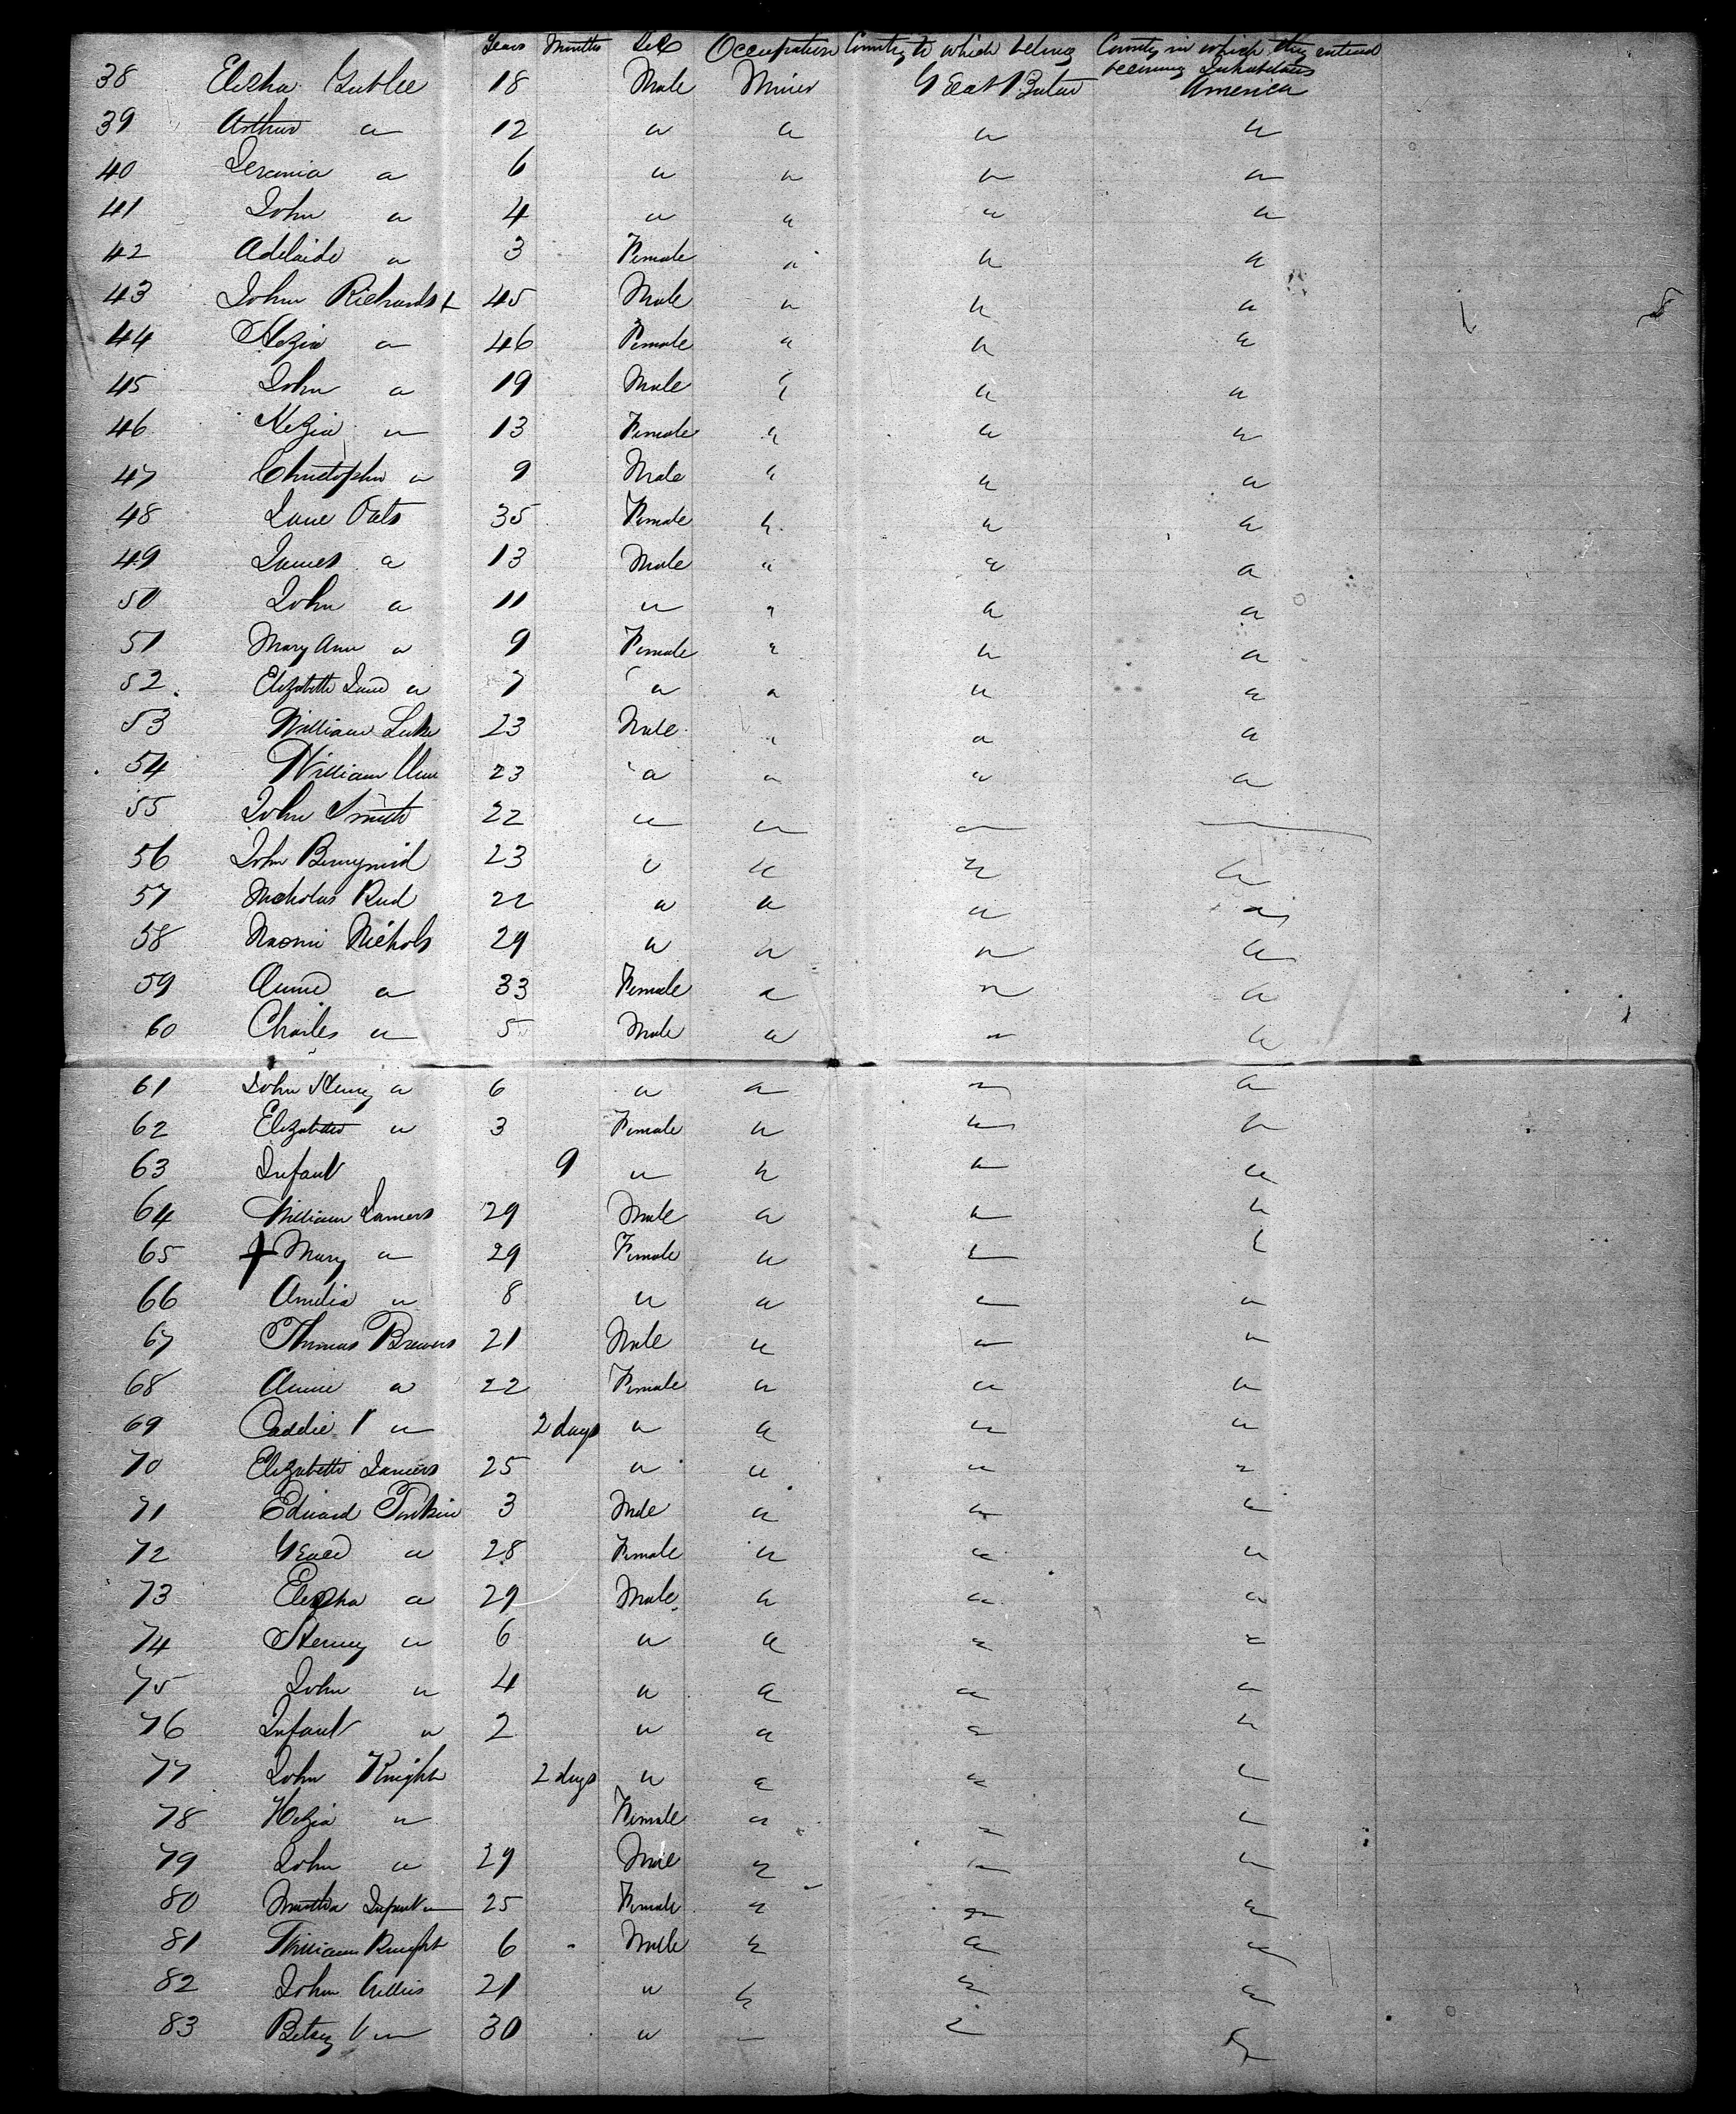 Years Months Sex Occupation Country to which belong Country in which they intend
becoming Inhabitants
38 Elisha Gublee 18 Male Miner Great Britain America
39 Arthur " 12 " " " "
40 " 6 " " " "
41 John " 4 " " " "
42 Adelaide " 3 Female " " "
43 John Richards 45 Male " " "
44 Kezia " 46 Female " " "
45 John " 19 Male " " "
46 Kezia " 13 Female " " "
47 Christopher " 9 Male " " "
48 Jane Oats 35 Female " " "
49 James " 13 Male " " "
50 John " 11 " " " "
51 Mary Ann " 9 Female " " "
52 Elizabeth Jane " 7 " " " "
53 William Luke 23 Male " " "
54 William 23 " " " "
55 John Smith 22 " " "
56 John 23 " " " "
57 Nicholas 22 " " " "
58 Naomi Nichols 29 " " " "
59 Annie " 33 Female " " "
60 Charles " 5 Male " " "
61 John Henry " 6 " " " "
62 Elizabeth " 3 Female " " "
63 Infant 9 " " " "
64 William James 29 Male " " "
65 Mary " 29 Female " " "
66 Amelia " 8 " " " "
67 Thomas Brewers 21 Male " " "
68 Annie " 22 Female " " "
69 Caddie " 2 days " " " "
70 Elizabeth James 25 " " " "
71 Edward 3 Male " " "
72 Grace " 28 Female " " "
73 Elisha " 29 Male " " "
74 Henry " 6 " " " "
75 John " 4 " " " "
76 Infant " 2 " " " "
77 John Knight 2 days " " " "
78 Kezia " Female " " "
79 John " 29 Male " " "
80 Martha Infant " 25 Female " " "
81 William Knight 6 Male " " "
82 John 21 " " " "
83 Betsy " 30 " " " "